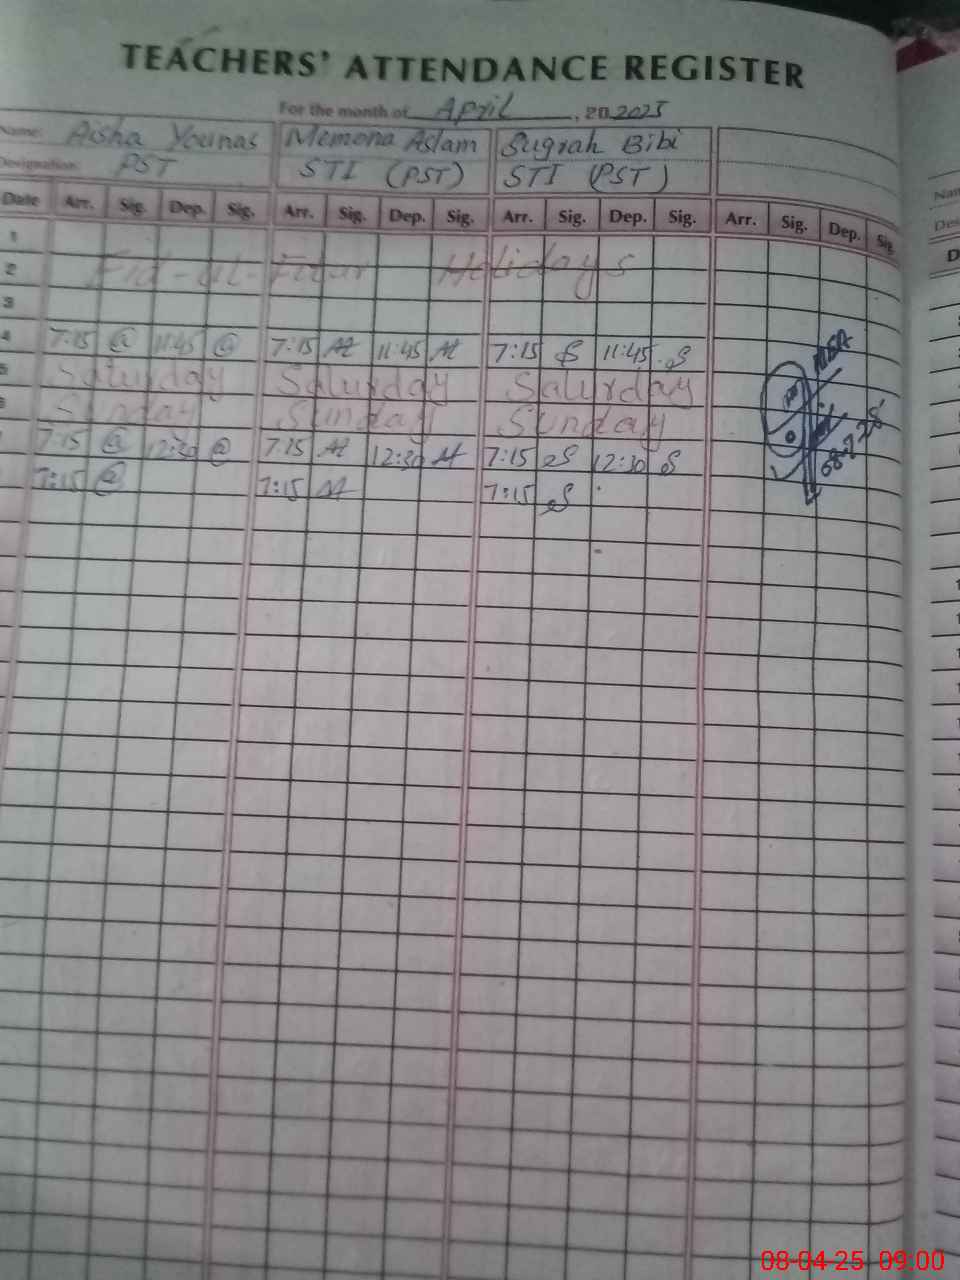 TEACHERS' ATTENDANCE REGISTER
For the month of April, 20 2025
Name: Aisha Younas Memona Aslam Sugrah Bibi
Designation: PST STI (PST) STI (PST)
Date Arr. Sig. Dep. Sig. Arr. Sig. Dep. Sig. Arr. Sig. Dep. Sig. Arr. Sig. Dep. Sig.
1
2 Eid-ul-Fitar Holidays
3
4 7:15 11:45 7:15 11:45 7:15 11:45
5 Saturday Saturday Saturday
6 Sunday Sunday Sunday
7:15 12:30 7:15 12:30 7:15 12:30
7:15 7:15 7:15
MEA
Nam
Des
D
08-04-25 09:00